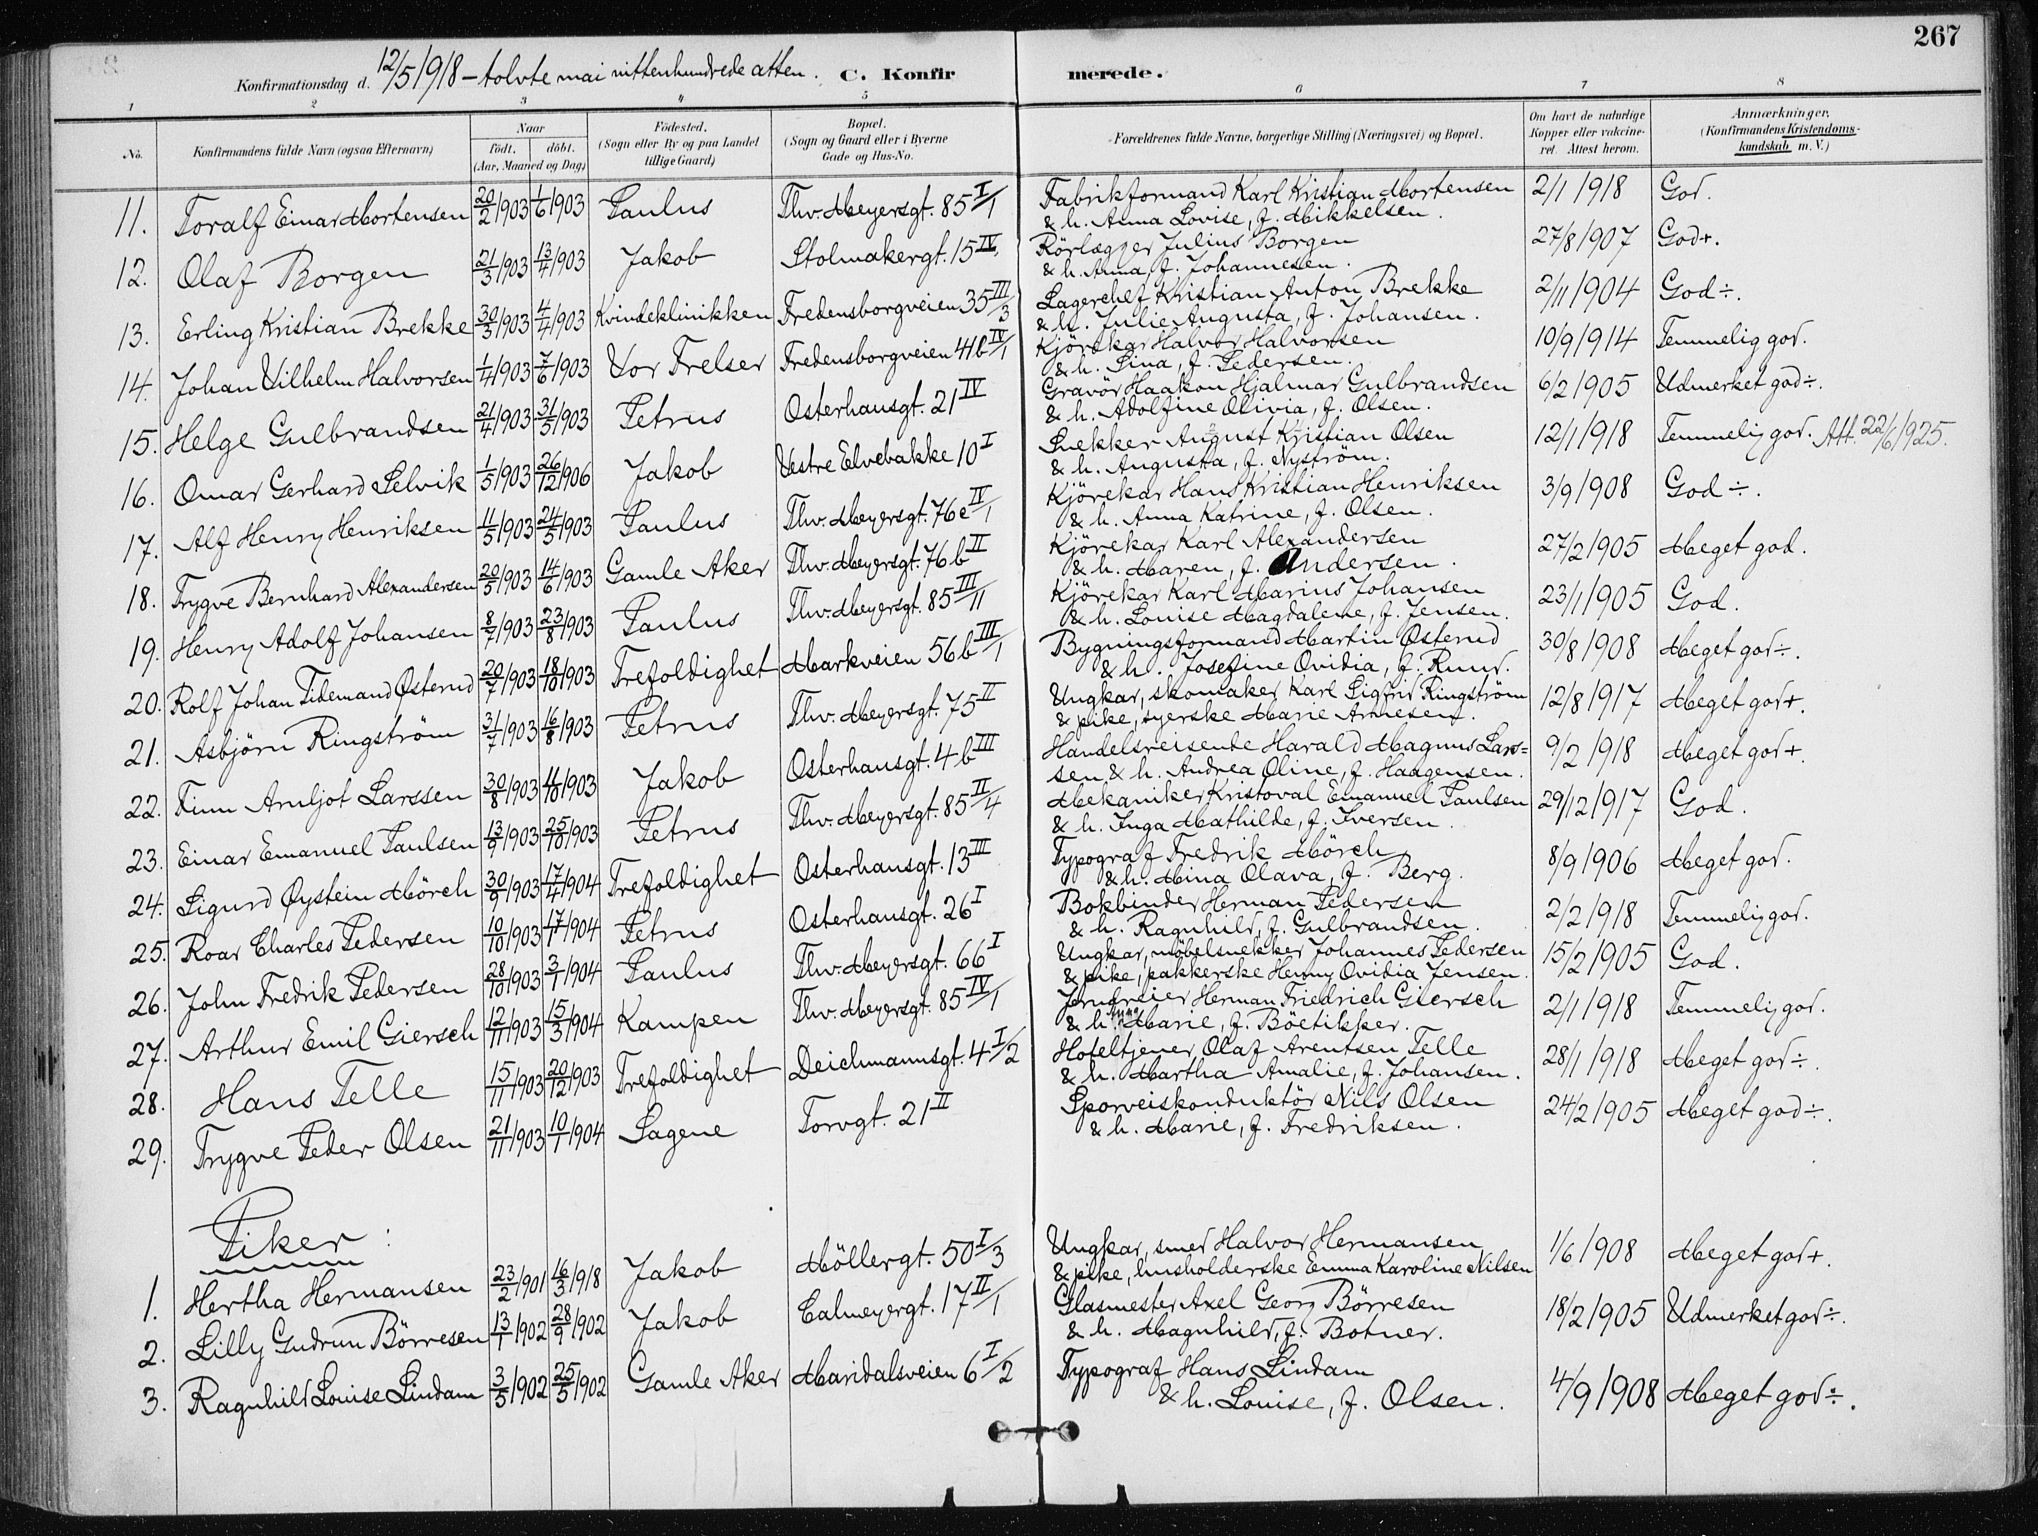 267
Konfirmationsdag d. 12/5 1918 – tolvte mai nittenhundrede atten. C. Konfirmerede.
1 2 3 4 5 6 7 8
No. Konfirmandens fulde Navn (ogsaa Efternavn) Naar födt. döbt. (Aar, Maaned og Dag) Födested. (Sogn eller By og paa Landet tillige Gaard) Bopæl. (Sogn og Gaard eller i Byerne Gade og Hus-No. Forældrenes fulde Navne, borgerlige Stilling (Næringsvei) og Bopæl. Om havt de naturlige Kopper eller vaccineret. Attest herom. Anmærkninger. (Konfirmandens Kristendomskundskab m. V.)
11. Toralf Einar Mortensen 20/2 1903 1/6 1903 Paulus Thv. Meyersgt. 85 I/1 Fabrikformand Karl Kristian Mortensen 2/1 1918 God.
& h. Anna Lovise, f. Mikkelsen.
12. Olaf Borgen 21/3 1903 13/4 1903 Jakob Stolmakergt. 15 IV Rörlægger Julius Borgen 27/8 1907 God+.
& h. Anna, f. Johannesen.
13. Erling Kristian Brekke 30/3 1903 4/4 1903 Kvindeklinikken Fredensborgveien 35 III/3 Lagerchef Kristian Anton Brekke 2/11 1904 God÷.
& h. Julie Augusta, f. Johansen.
14. Johan Vilhelm Halvorsen 1/4 1903 7/6 1903 Vor Frelser Fredensborgveien 41b IV/1 Kjörekar Halvor Halvorsen 10/9 1914 Temmelig god.
& h. Lina, f. Pedersen.
15. Helge Gulbrandsen 21/4 1903 31/5 1903 Petrus Osterhausgt. 21 IV Gravör Haakon Hjalmar Gulbrandsen 6/2 1905 Udmerket god÷.
& h. Adolfine Olivia, f. Olsen.
16. Omar Gerhard Selvik 1/5 1903 26/12 1906 Jakob Vestre Elvebakke 10 I Snekker August Kristian Olsen 12/1 1918 Temmelig god. Att. 22/6 1925.
& h. Augusta, f. Nyström.
17. Alf Henry Henriksen 11/5 1903 24/5 1903 Paulus Thv. Meyersgt. 76c IV/1 Kjörekar Hans Kristian Henriksen 3/9 1908 God ÷.
& h. Anna Katrine, f. Olsen.
18. Trygve Bernhard Alexandersen 20/5 1903 14/6 1903 Gamle Aker Thv. Meyersgt. 76b II Kjörekar Karl Alexandersen 27/2 1905 Meget god.
& h. Maren, f. Andersen.
19. Henry Adolf Johansen 8/7 1903 23/8 1903 Paulus Thv. Meyersgt. 85 III/11 Kjörekar Karl Marius Johansen 23/1 1905 God.
& h. Louise Magdalene, f. Jensen.
20. Rolf Johan Tidemand Østerud 20/7 1903 18/10 1903 Trefoldighet Markveien 56b III/1 Bygningsformand Martin Østerud 30/8 1908 Meget god÷.
& h. Josefine Ovidia, f. Ruud.
21. Asbjörn Ringström 31/7 1903 16/8 1903 Petrus Thv. Meyersgt. 75 II Ungkar, skomaker Karl Sigfrid Ringström 12/8 1917 Meget god+.
& pike, syerske Marie Arnesen.
22. Finn Arnljot Larssen 30/8 1903 11/10 1903 Jakob Osterhausgt. 4b III Handelsreisende Harald Magnus Lars= 9/2 1918 Meget god+.
sen & h. Andrea Oline, f. Haagensen.
23. Einar Emanuel Paulsen 13/9 1903 25/10 1903 Petrus Thv. Meyersgt. 85 II/4 Mekaniker Kristoval Emanuel Paulsen 29/12 1917 God.
& h. Inga Mathilde, f. Iversen.
24. Sigurd Øystein Mörch 30/9 1903 17/4 1904 Trefoldighet Osterhausgt. 13 III Typograf Fredrik Mörch 8/9 1906 Meget god.
& h. Mina Olava, f. Berg.
25. Roar Charles Pedersen 10/10 1903 17/1 1904 Petrus Osterhausgt. 26 I Bokbinder Herman Pedersen 2/2 1918 Temmelig god.
& h. Ragnhild, f. Gulbrandsen.
26. John Fredrik Pedersen 28/10 1903 3/1 1904 Paulus Thv. Meyersgt. 66 I Ungkar, möbelsnekker Johannes Pedersen 15/2 1905 God.
& pike, pakkerske Henny Ovidia Jensen.
27. Arthur Emil Giersch 12/11 1903 15/3 1904 Kampen Thv. Meyersgt. 85 IV/1 Jerndreier Herman Friedrich Giersch 2/1 1918 Temmelig god.
& h. Marie, f. Böetikker.
28. Hans Telle 15/11 1903 20/12 1903 Trefoldighet Deichmannsgt. 4 I/2 Hoteltjener Olaf Arentsen Telle 28/1 1918 Meget god÷.
& h. Martha Amalie, f. Johansen.
29. Trygve Peder Olsen 21/11 1903 10/1 1904 Sagene Torvgt. 21 II Sporveiskonduktör Nils Olsen 24/2 1905 Meget god÷.
& h. Marie, f. Fredriksen.
Piker:
1. Hertha Hermansen 23/2 1901 16/3 1918 Jakob Möllergt. 50 I/3 Ungkar, smed Halvor Hermansen 1/6 1908 Meget god+.
& pike, husholderske Emma Karoline Nilsen
2. Lilly Gudrun Börresen 13/1 1902 28/9 1902 Jakob Calmeyergt. 17 II/1 Glasmester Axel Georg Börresen 18/2 1905 Udmerket god÷.
& h. Magnhild, f. Botner.
3. Ragnhild Louise Lindam 3/5 1902 25/5 1902 Gamle Aker Maridalsveien 6 I/2 Typograf Hans Lindam 4/9 1908 Meget god÷.
& h. Louise, f. Olsen.